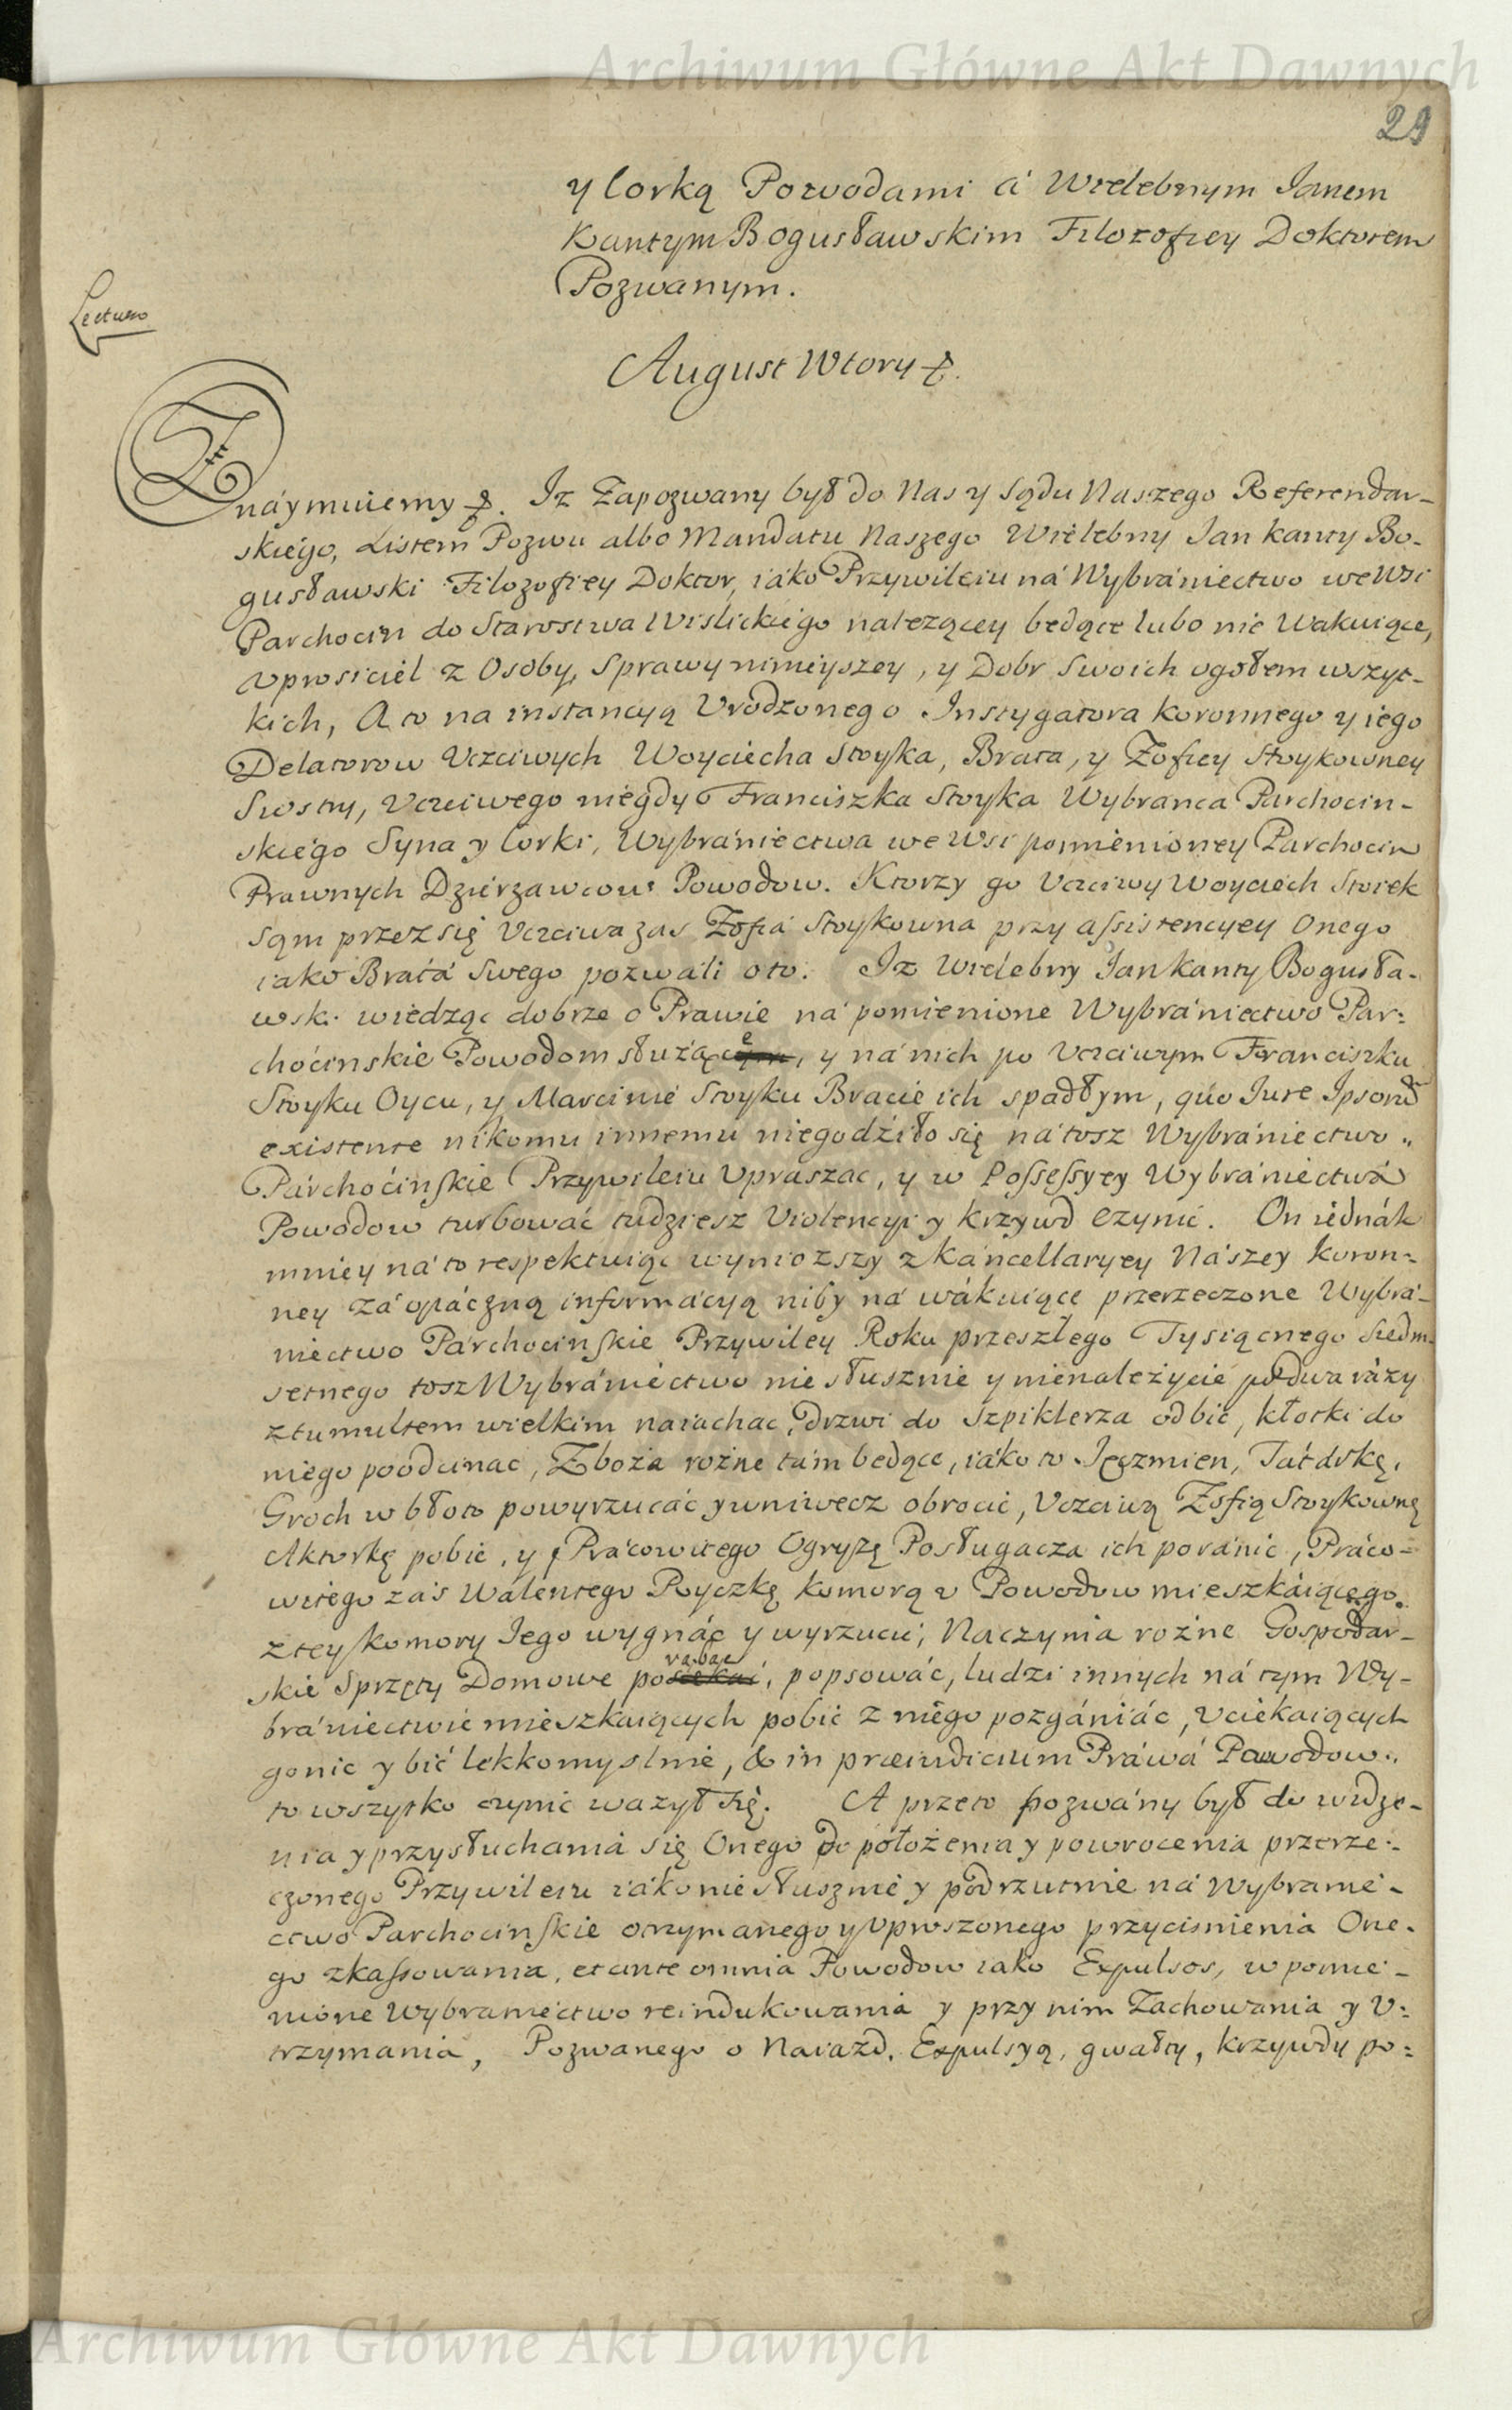 Archiwum Główne Akt Dawnych
29
y Corką Powodami á Wielebnym Janem
Kantym Bogusławskim Filozofiey Doktorem
Pozwanym.
Lectum
August Wtory &.
Znáymuiemy &. Iz Zapozwany był do Nas y Sądu Naszego Referendar-
skiego, Listem Pozwu albo Mandatu Naszego Wielebny Jan Kanty Bo-
gusławski Filozofiey Doktor, iáko Przywileiu ná Wybrániectwo we Wsi
Parchocin do Starostwa Wislickiego nalezącey będące lubo nie Wakuiące,
Vprosiciel z Osoby, Sprawy ninieyszey, y Dobr Swoich ogołem wszyt-
kich, A to na instancyą Vrodzonego Instygatora Koronnego y iego
Delatorow Vczciwych Woyciecha Stoyka, Brata, y Zofiey Stoykowney
Siostry, Vczciwego niegdy Franciszka Stoyka Wybranca Parchocin-
skiego Syna y Corki, Wybrániectwa we Wsi pomienioney Parchocin
Prawnych Dzierzawcow Powodow. Ktorzy go Vczciwy Woyciech Stoiek
sąm przez się Vczciwa zas Zofiá Stoykowna przy assistencyey Onego
iako Bratá Swego pozwáli o to. Iz Wielebny Jan Kanty Bogusła-
wski wiedząc dobrze o Prawie ná pomienione Wybrániectwo Par:
choćinskie Powodom służące, y ná nich po Vczciwym Franciszku
Stoyku Oycu, y Marcinie Stoyku Bracie ich spadłym, quo Iure Ipsorum
existente nikomu innemu niegodźiło się ná tosz Wybrániectwo
Párchoćinskie Przywileiu Vpraszac, y w Possessyey Wybrániectwá
Powodow turbowáć tudziesz Violencyi y krzywd czynic. On iednák
mniey ná to respektuiąc wyniozszy z Káncellaryey Nászey Koron:
ney zá opáczną informácyą niby ná wákuiące przerzeczone Wybrá-
niectwo Párchocinskie Przywiley Roku przeszłego Tysiącnego Siedm-
setnego tosz Wybrániectwo niesłusznie y nienależycie po dwa rázy
z tumultem wielkim naiachac, drzwi do Szpiklerza odbić, kłotki do
niego poodcinac, Zboża rożne tám będące, iáko to Ięczmien, Tátárkę,
Groch w błoto powyrzucáć y wniwecz obrocić, Vczciwą Zofią Stoykownę
Aktorkę pobić, y Prácowitego Ogryzę Posługacza ich poránic, Práco-
witego záś Walentego Ryczkę komorą v Powodow mieszkáiącego
z tey komory Iego wygnáć y wyrzucić, Naczynia rożne Gospodar-
skie Sprzęty Domowe porąbac, popsowáć, ludzi innych ná tym Wy-
brániectwie mieszkaiących pobić z niego pozgániáć, Vciekaiących
gonic y bić lekkomyslnie, & in præiudicium Práwá Powodow
to wszytko czynic wazył się. A przeto pozwány był do widze-
nia y przysłuchania się Onego do położenia y powrocenia przerze:
czonego Przywileiu iáko niesłusznie y podrzutnie ná Wybranie-
ctwo Parchocinskie otrzymanego y Vproszonego przycisnienia One-
go zkassowania, et ante omnia Powodow iako Expulsos, w pomie-
nione Wybraniectwo reindukowania y przy nim Zachowania y V:
trzymania, Pozwanego o Naiazd, Expulsyą, gwałty, krzywdy po:
Archiwum Główne Akt Dawnych